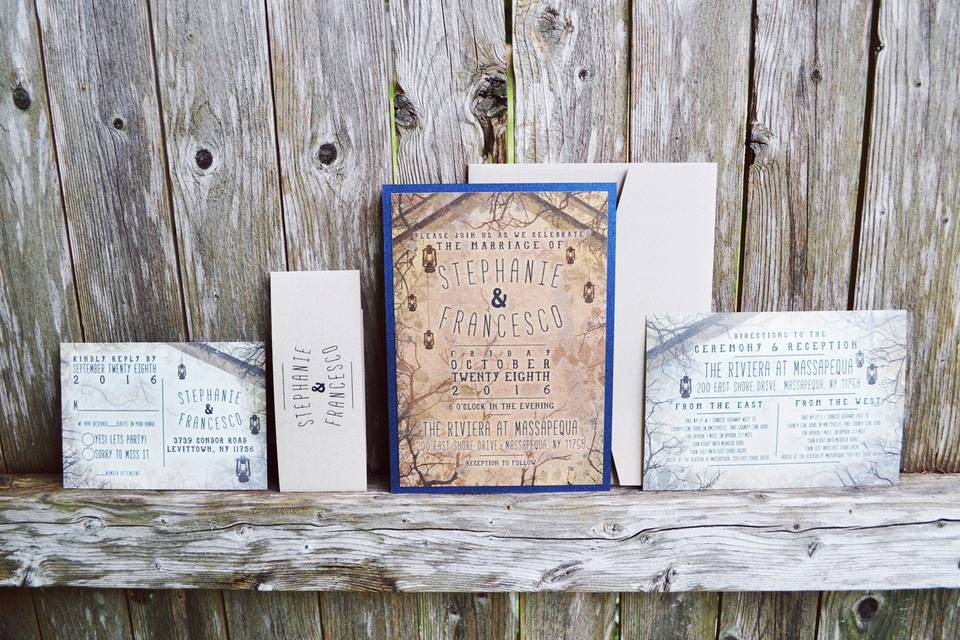 KINDLY REPLY BY
SEPTEMBER TWENTY EIGHTH
2016
M
YES! LETS PARTY!
SORRY TO MISS IT
NUMBER ATTENDING
STEPHANIE
&
FRANCESCO
3739 CONDOR ROAD
LEVITTOWN, NY 11756
STEPHANIE
&
FRANCESCO
PLEASE JOIN US AS WE CELEBRATE
THE MARRIAGE OF
STEPHANIE
&
FRANCESCO
FRIDAY
OCTOBER
TWENTY EIGHTH
2016
6 O'CLOCK IN THE EVENING
THE RIVIERA AT MASSAPEQUA
200 EAST SHORE DRIVE • MASSAPEQUA, NY 11758
RECEPTION TO FOLLOW
DIRECTIONS TO THE
CEREMONY & RECEPTION
THE RIVIERA AT MASSAPEQUA
200 EAST SHORE DRIVE MASSAPEQUA, NY 11758
FROM THE EAST
FROM THE WEST